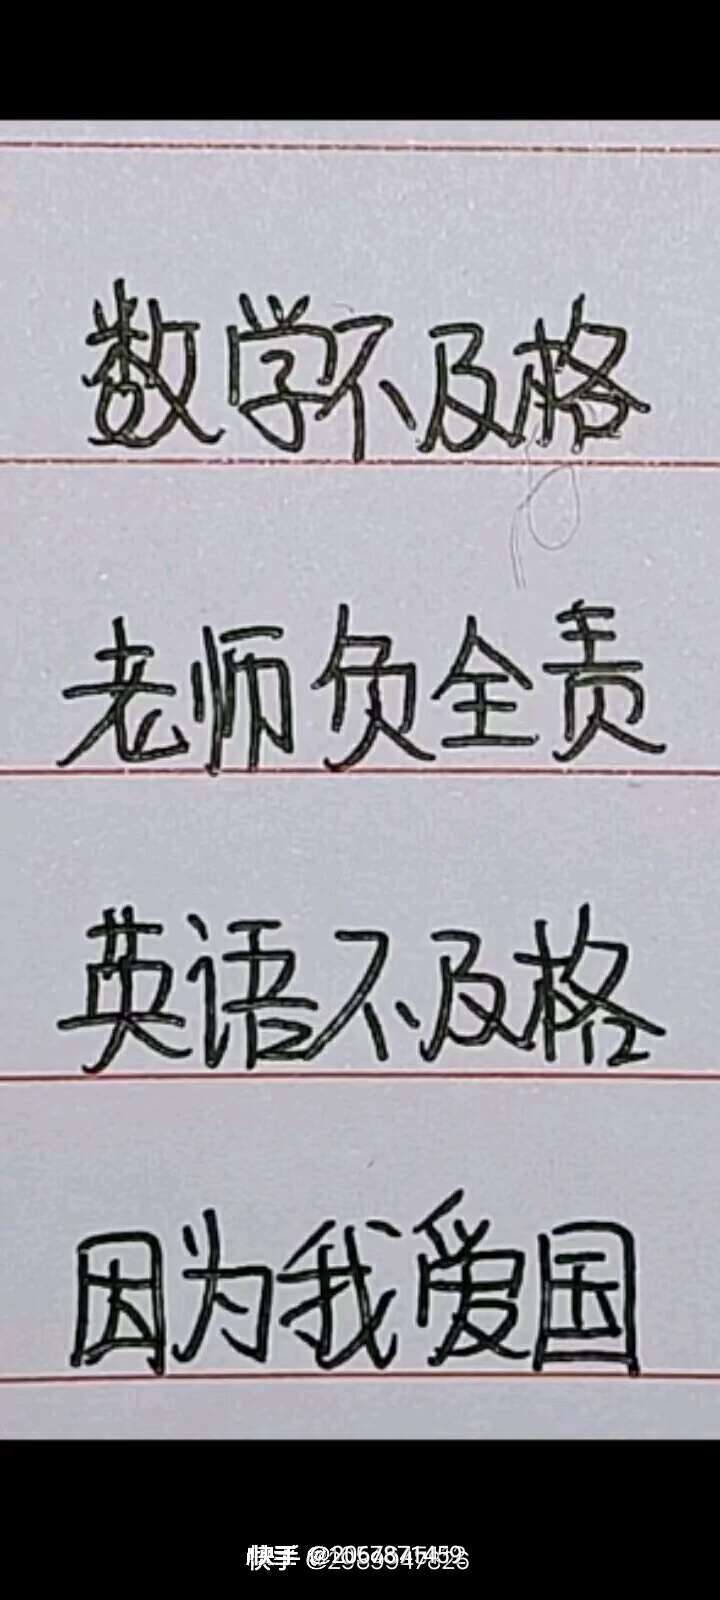 数学不及格
老师负全责
英语不及格
因为我爱国
快手